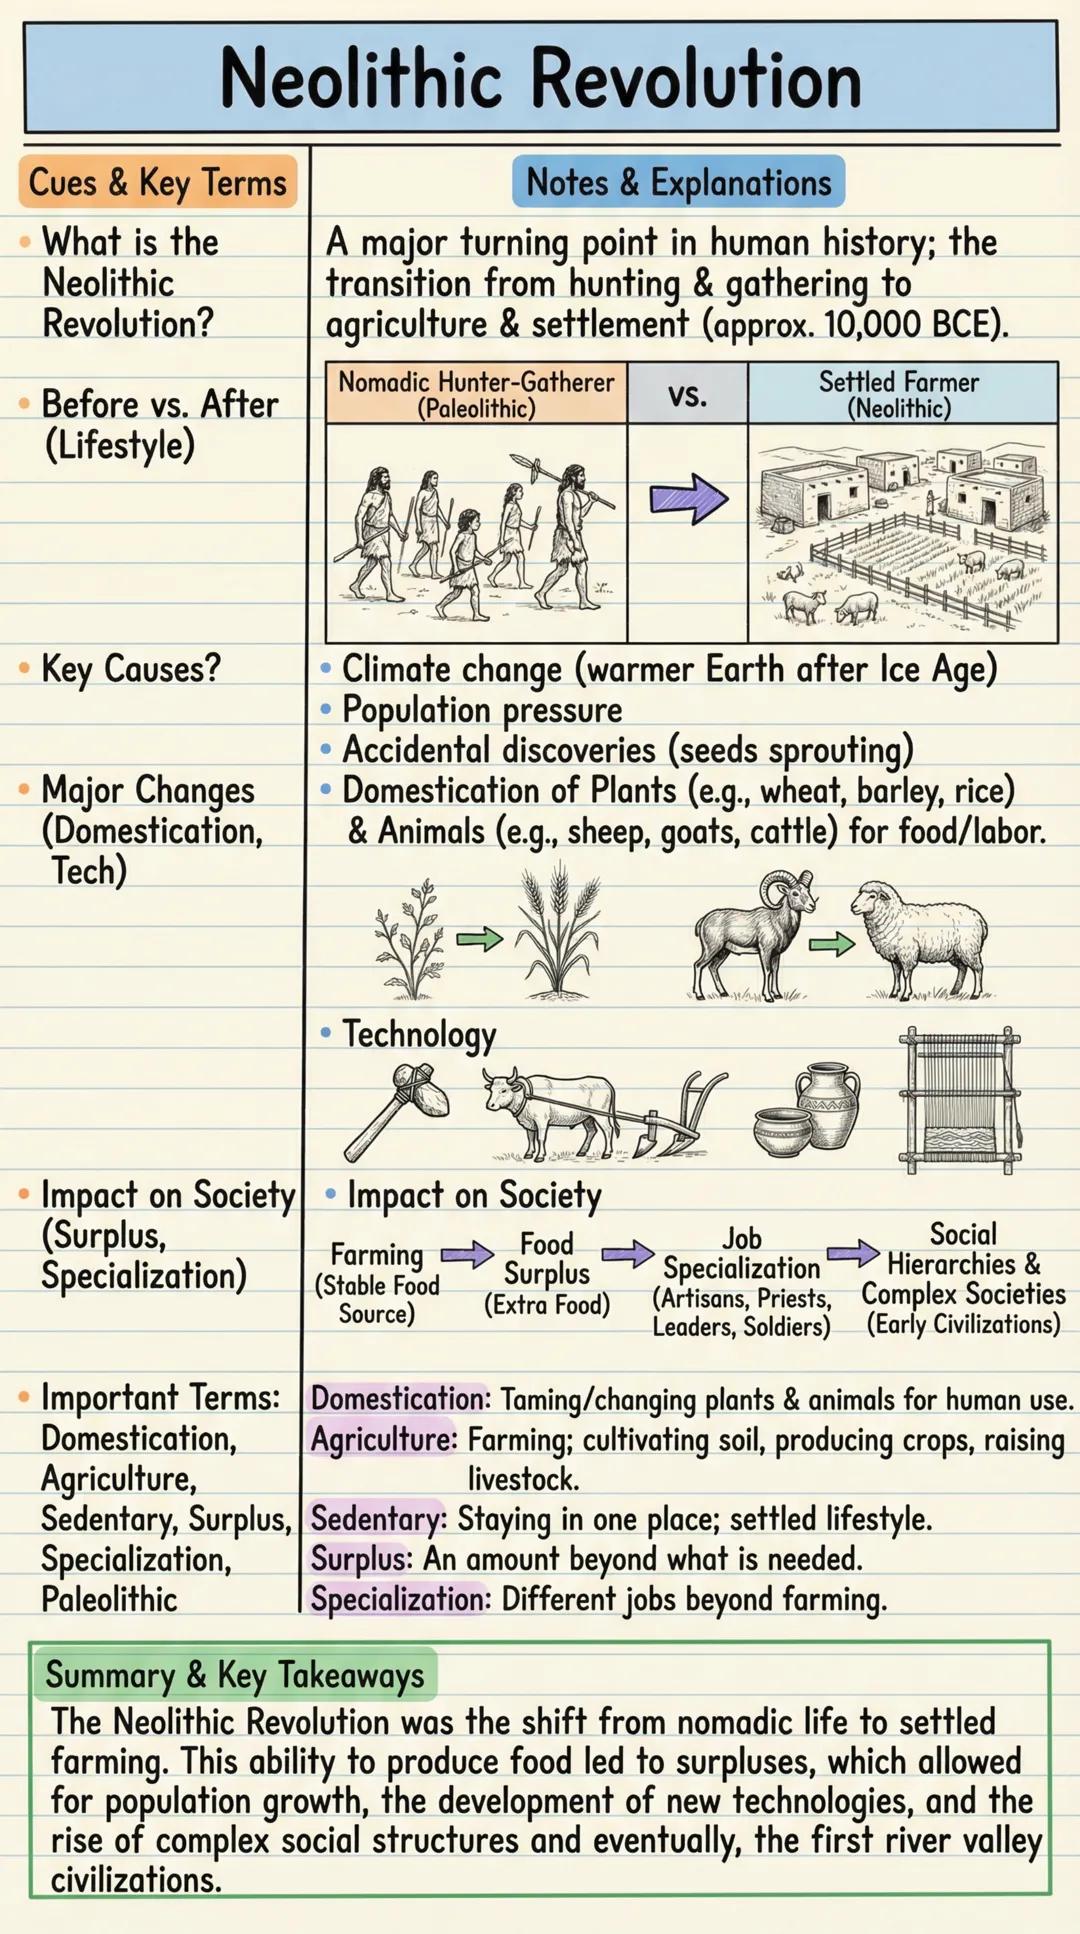 Neolithic Revolution
Cues & Key Terms
Notes & Explanations
• What is the
Neolithic
Revolution?
A major turning point in human history; the
transition from hunting & gathering to
agriculture & settlement (approx. 10,000 BCE).
• Before vs. After
(Lifestyle)
Nomadic Hunter-Gatherer
(Paleolithic)
vs.
Settled Farmer
(Neolithic)
• Key Causes?
• Climate change (warmer Earth after Ice Age)
• Population pressure
• Accidental discoveries (seeds sprouting)
• Major Changes
(Domestication,
Tech)
• Domestication of Plants (e.g., wheat, barley, rice)
& Animals (e.g., sheep, goats, cattle) for food/labor.
• Technology
• Impact on Society
(Surplus,
Specialization)
• Impact on Society
Farming
(Stable Food
Source)
Food
Surplus
(Extra Food)
Job
Specialization
(Artisans, Priests,
Leaders, Soldiers)
Social
Hierarchies &
Complex Societies
(Early Civilizations)
• Important Terms:
Domestication,
Agriculture,
Sedentary, Surplus,
Specialization,
Paleolithic
Domestication: Taming/changing plants & animals for human use.
Agriculture: Farming; cultivating soil, producing crops, raising
livestock.
Sedentary: Staying in one place; settled lifestyle.
Surplus: An amount beyond what is needed.
Specialization: Different jobs beyond farming.
Summary & Key Takeaways
The Neolithic Revolution was the shift from nomadic life to settled
farming. This ability to produce food led to surpluses, which allowed
for population growth, the development of new technologies, and the
rise of complex social structures and eventually, the first river valley
civilizations.